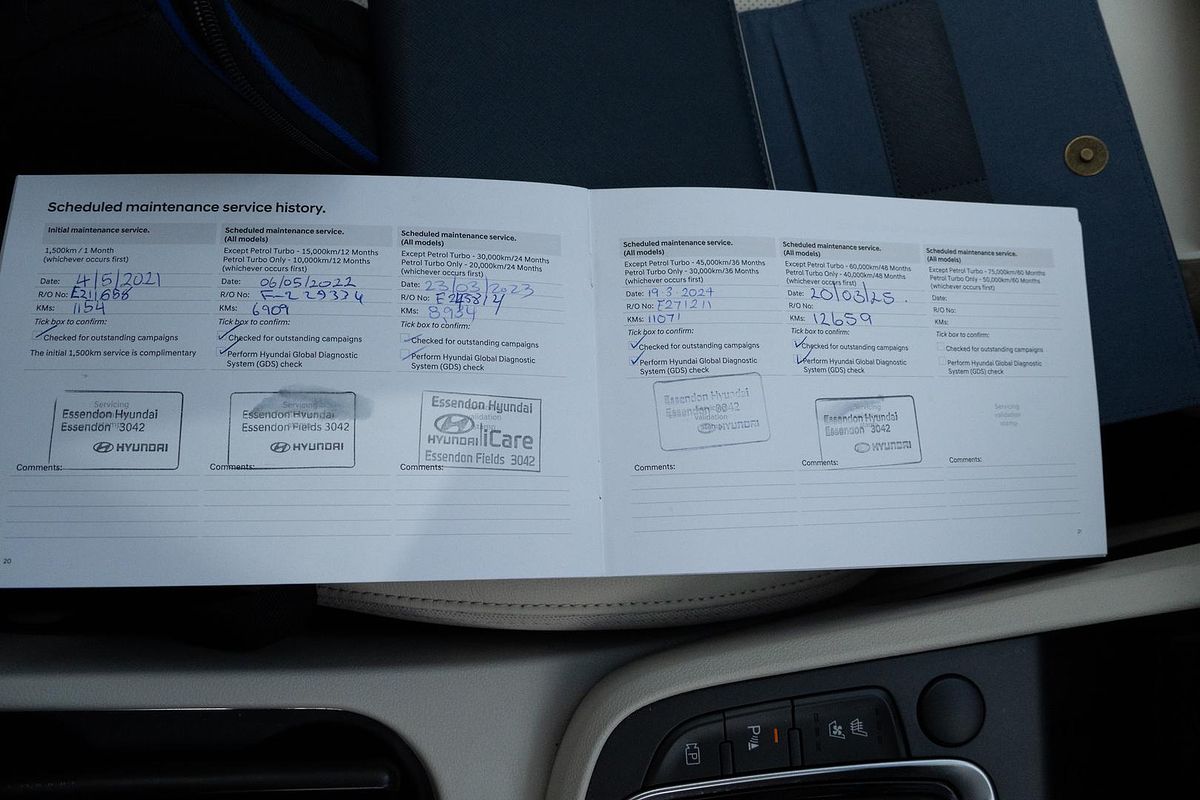 Scheduled maintenance service history.
Initial maintenance service.
1,500km / 1 Month
(whichever occurs first)
Date: 4/5/2021
R/O No: E211688
KMs: 1154
Tick box to confirm:
Checked for outstanding campaigns
The initial 1,500km service is complimentary
Essendon Hyundai
Essendon 3042
HYUNDAI
Comments:
Scheduled maintenance service.
(All models)
Except Petrol Turbo - 15,000km/12 Months
Petrol Turbo Only - 10,000km/12 Months
(whichever occurs first)
Date: 06/05/2022
R/O No:
KMs: 6909
Tick box to confirm:
Checked for outstanding campaigns
Perform Hyundai Global Diagnostic
System (GDS) check
Servicing
Essendon Hyundai
Essendon Fields 3042
HYUNDAI
Comments:
Scheduled maintenance service.
(All models)
Except Petrol Turbo - 30,000km/24 Months
Petrol Turbo Only - 20,000km/24 Months
(whichever occurs first)
Date: 23/03/2023
R/O No:
KMs: 8934
Tick box to confirm:
Checked for outstanding campaigns
Perform Hyundai Global Diagnostic
System (GDS) check
Essendon Hyundai
validation
stamp
HYUNDAI iCare
Essendon Fields 3042
Comments:
20
Scheduled maintenance service.
(All models)
Except Petrol Turbo - 45,000km/36 Months
Petrol Turbo Only - 30,000km/36 Months
(whichever occurs first)
Date: 19.3.2024
R/O No: F271211
KMs: 11071
Tick box to confirm:
Checked for outstanding campaigns
Perform Hyundai Global Diagnostic
System (GDS) check
Essendon Hyundai
Essendon 3042
HYUNDAI
Comments:
Scheduled maintenance service.
(All models)
Except Petrol Turbo - 60,000km/48 Months
Petrol Turbo Only - 40,000km/48 Months
(whichever occurs first)
Date: 20/03/25.
R/O No:
KMs: 12659
Tick box to confirm:
Checked for outstanding campaigns
Perform Hyundai Global Diagnostic
System (GDS) check
Servicing
Essendon Hyundai
Essendon 3042
HYUNDAI
Comments:
Scheduled maintenance service.
(All models)
Except Petrol Turbo - 75,000km/60 Months
Petrol Turbo Only - 50,000km/60 Months
(whichever occurs first)
Date:
R/O No:
KMs:
Tick box to confirm:
Checked for outstanding campaigns
Perform Hyundai Global Diagnostic
System (GDS) check
Servicing
validation
stamp
Comments:
21
P
P